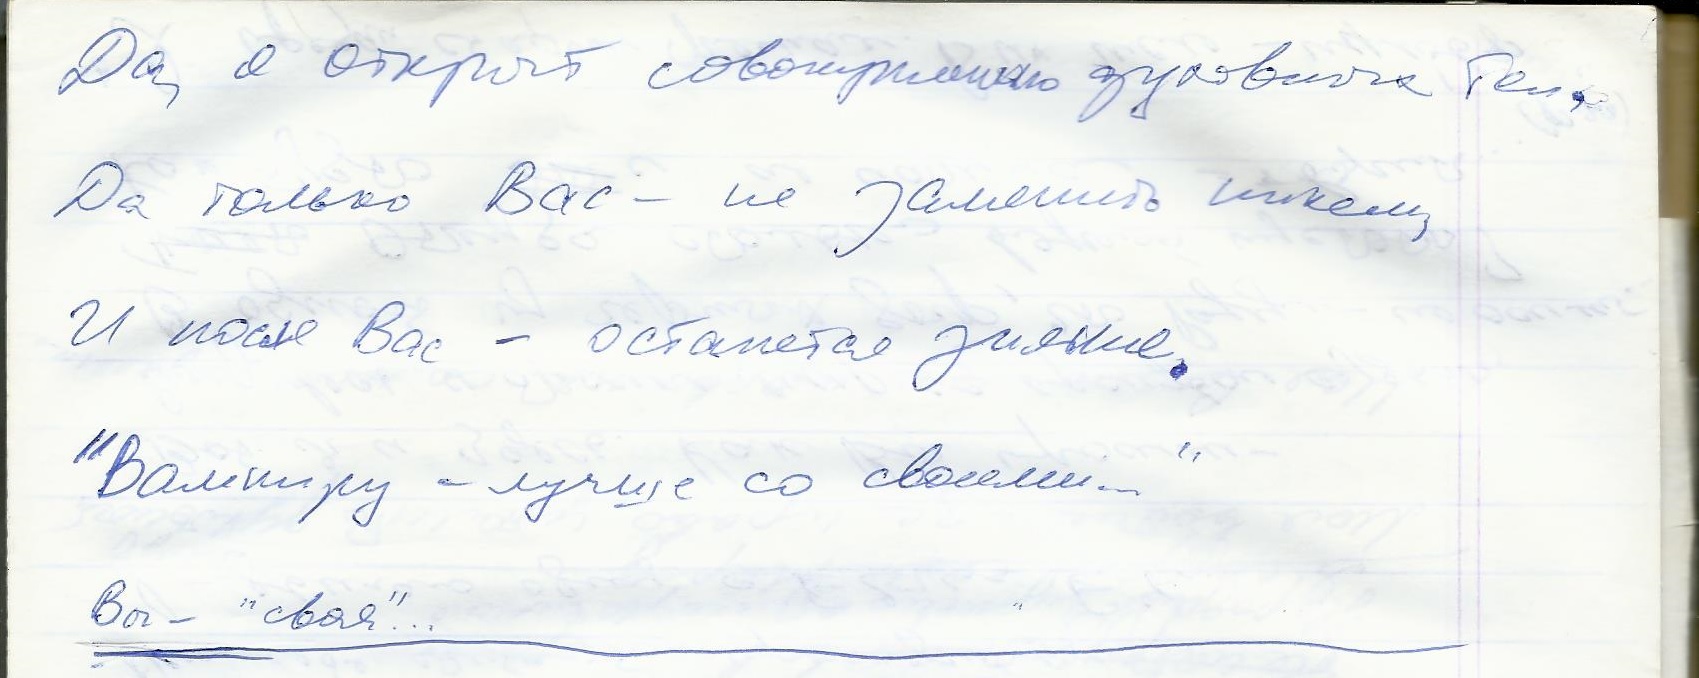 Да, я открыт совокуплению духовных тел.
Да только Вас – не заменить никем,
И после Вас – останется зияние.
"Вампиру – лучше со своими..."
Вы – "своя"...